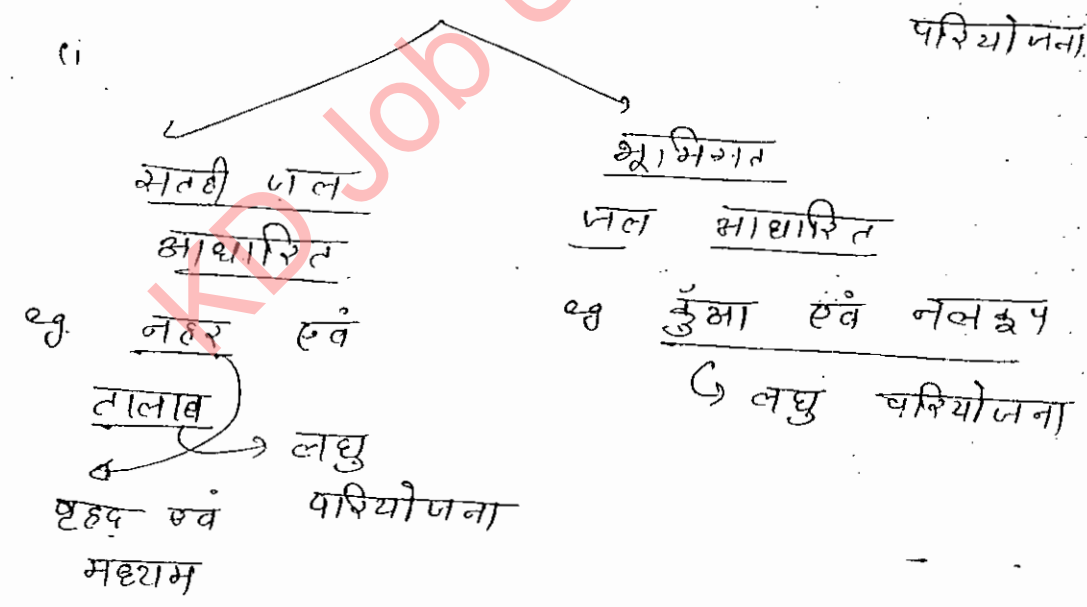 परियोजना
(i
सतही जल
आधारित
eg. नहर एवं
तालाब
लघु
परियोजना
बृहद् एवं
मध्यम
भूमिगत
जल आधारित
eg कुँआ एवं नलकूप
लघु परियोजना
KD Job